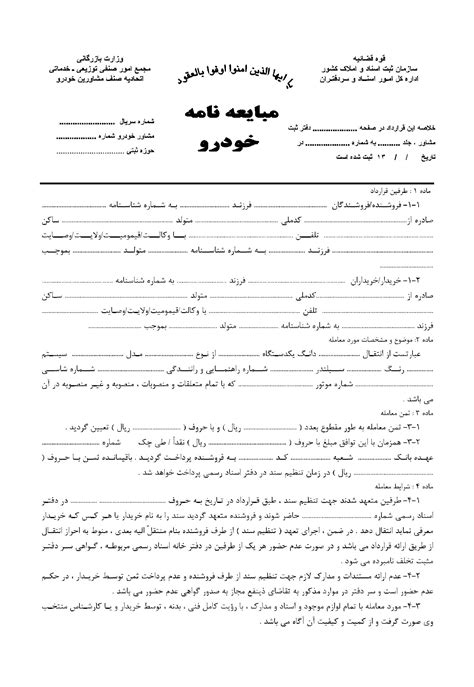 قوه قضائیه
سازمان ثبت اسناد و املاک کشور
اداره کل امور اسناد و سردفتران
یا ایها الذین امنوا اوفوا بالعقود
وزارت بازرگانی
مجمع امور صنفی توزیعی ـ خدماتی
اتحادیه صنف مشاورین خودرو
مبایعه نامه
خودرو
خلاصه این قرارداد در صفحه .................... دفتر ثبت
مشاور . جلد .......... به شماره .................... در
تاریخ / / ۱۳ ثبت شده است
شماره سریال ........................
مشاور خودرو شماره ....................
حوزه ثبتی ........................
ماده ۱ : طرفین قرارداد
۱-۱- فروشنده/فروشندگان ........................ فرزند ........................ به شماره شناسنامه ........................
صادره از ........................ کدملی ........................ متولد ........................ ساکن
........................ تلفن ........................ با وکالت/قیمومیت/ولایت/وصایت
........................ فرزند ........................ به شماره شناسنامه ........................ متولد ........................ بموجب
........................
۱-۲- خریدار/خریداران ........................ فرزند ........................ به شماره شناسنامه ........................
صادره از ........................ کدملی ........................ متولد ........................ ساکن
........................ تلفن ........................ با وکالت/قیمومیت/ولایت/وصایت ........................
فرزند ........................ به شماره شناسنامه ........................ متولد ........................ بموجب ........................
ماده ۲: موضوع و مشخصات مورد معامله
عبارتست از انتقال ........................ دانگ یکدستگاه ........................ از نوع ........................ مدل ........................ سیستم
........................ رنگ ........................ سیلندر ........................ شماره راهنمایی و رانندگی ........................ شماره شاسی
........................ شماره موتور ........................ که با تمام متعلقات و منصوبات ، منصوبه و غیر منصوبه در آن
می باشد .
ماده ۳ : ثمن معامله
۳-۱- ثمن معامله به طور مقطوع بعدد ( ........................ ریال ) و با حروف ( ........................ ریال ) تعیین گردید .
۳-۲- همزمان با این توافق مبلغ با حروف ( ........................ ریال ) نقداً / طی چک ........................ شماره ........................
عهده بانک ........................ شعبه ........................ کد ........................ به فروشنده پرداخت گردید. باقیمانده ثمن با حروف (
........................ ریال ) در زمان تنظیم سند در دفتر اسناد رسمی پرداخت خواهد شد .
ماده ۴ : شرایط معامله
۴-۱- طرفین متعهد شدند جهت تنظیم سند ، طبق قرارداد در تاریخ به حروف ........................ در دفتر
اسناد رسمی شماره ........................ حاضر شوند و فروشنده متعهد گردید سند را به نام خریدار یا هر کس که خریدار
معرفی نماید انتقال دهد . در ضمن ، اجرای تعهد ( تنظیم سند ) از طرف فروشنده بنام منتقل الیه بعدی ، منوط به احراز انتقال
از طریق ارائه قرارداد می باشد و در صورت عدم حضور هر یک از طرفین در دفتر خانه اسناد رسمی مربوطه ، گواهی سر دفتر
مثبت تخلف نامبرده می شود .
۴-۲- عدم ارائه مستندات و مدارک لازم جهت تنظیم سند از طرف فروشنده و عدم پرداخت ثمن توسط خریدار ، در حکم
عدم حضور است و سر دفتر در موارد مذکور به تقاضای ذینفع مجاز به صدور گواهی عدم حضور می باشد .
۴-۳- مورد معامله با تمام لوازم موجود و اسناد و مدارک ، با رؤیت کامل فنی ، بدنه ، توسط خریدار و یا کارشناس منتخب
وی صورت گرفت و از کمیت و کیفیت آن آگاه می باشد .